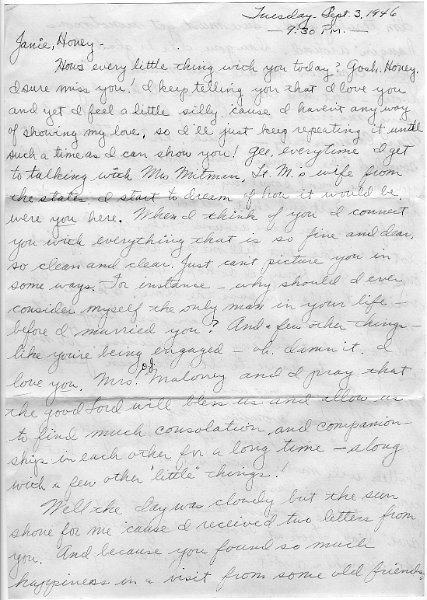 Tuesday - Sept. 3, 1946
- 9:30 P.M. -
Janie, Honey -
How's every little thing with you today? Gosh, Honey,
I sure miss you! I keep telling you that I love you
and yet I feel a little silly 'cause I haven't any way
of showing my love, so I'll just keep repeating it until
such a time as I can show you! Gee, everytime I get
to talking with Mrs. Mitman, Lt. M.'s wife from
the states I start to dream of how it would be
were you here. When I think of you I connect
you with everything that is so fine and dear,
so clean and clear. Just can't picture you in
some ways. For instance - why should I ever
consider myself the only man in your life -
before I married you? And a few other things -
like you're being engaged - oh, damn it, I
love you, Mrs. Maloney and I pray that
the good Lord will bless us and allow us
to find much consolation and companion-
ships in each other for a long time - along
with a few other "little" things!
Well the day was cloudy but the sun
shone for me 'cause I received two letters from
you. And because you found so much
happiness in a visit from some old friends,